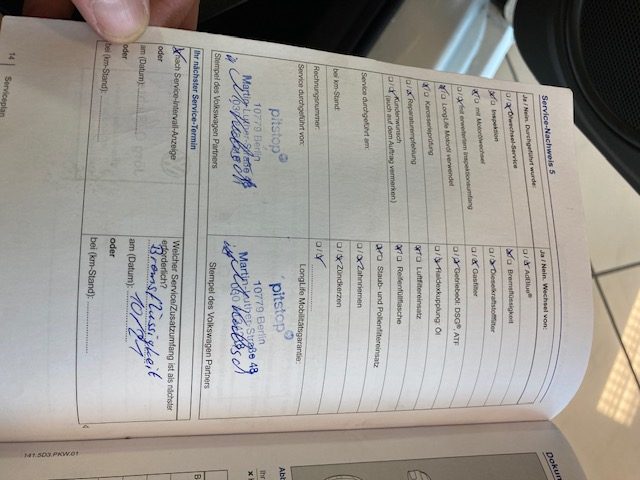 Service-Nachweis 5
Ja / Nein. Durchgeführt wurde:
Ölwechsel-Service
Inspektion
mit Motorölwechsel
mit erweitertem Inspektionsumfang
LongLife Motoröl verwendet
Karosserieprüfung
Reparaturempfehlung
Kundenwunsch
(auch auf dem Auftrag vermerken)
Service durchgeführt am:
bei km-Stand:
Rechnungsnummer:
Service durchgeführt von:
pitstop
10779 Berlin
Stempel des Volkswagen Partners
Ja / Nein. Wechsel von:
AdBlue®
Bremsflüssigkeit
Dieselkraftstofffilter
Gasfilter
Getriebeöl: DSG®, ATF
Haldexkupplung: Öl
Luftfiltereinsatz
Reifenfüllflasche
Staub- und Pollenfiltereinsatz
Zahnriemen
Zündkerzen
LongLife Mobilitätsgarantie:
pitstop
10779 Berlin
Martin-Luther-Straße 48
Stempel des Volkswagen Partners
Ihr nächster Service-Termin
nach Service-Intervall-Anzeige
oder
am (Datum):
oder
bei (km-Stand):
Welcher Service/Zusatzumfang ist als nächster
erforderlich?
Bremsflüssigkeit
am (Datum): 10/21
oder
bei (km-Stand):
14 Serviceplan
141.5D3.PKW.01
Dokum